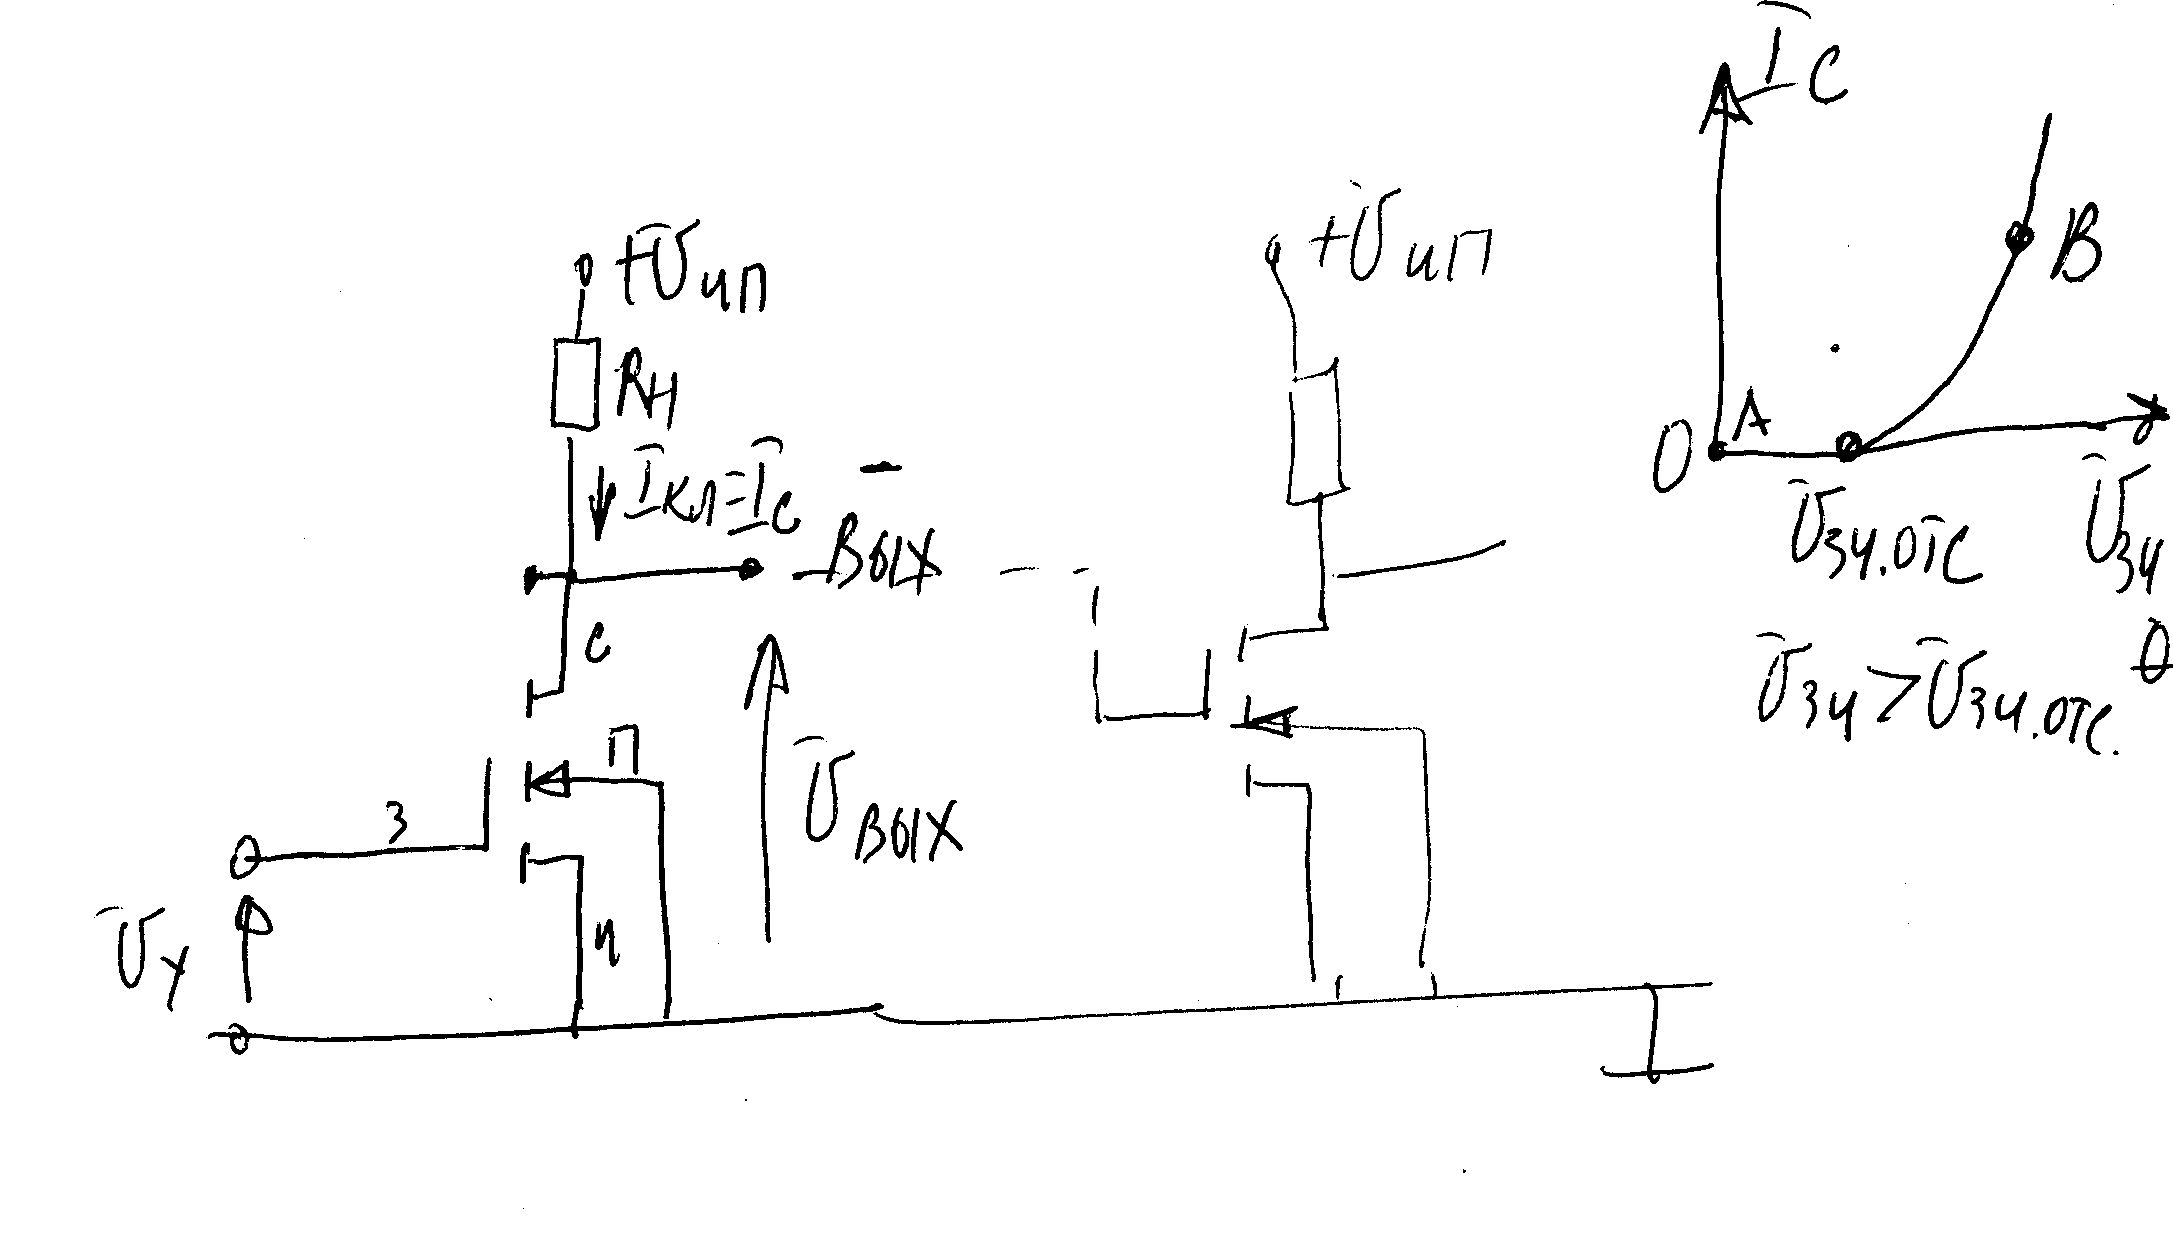 +Uип
Rн
Iкл=Iс
Вых
с
п
з
и
Uу
Uвых
+Uип
Iс
В
А
0
Uзи.отс
Uзи
Uзи>Uзи.отс.